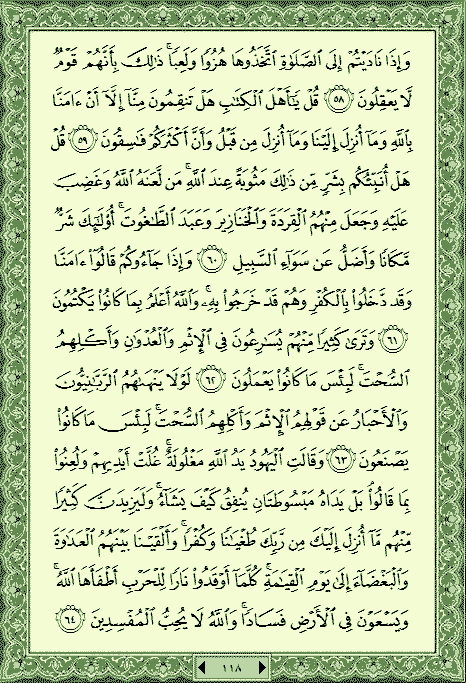 وَإِذَا نَادَيْتُمْ إِلَى ٱلصَّلَوٰةِ ٱتَّخَذُوهَا هُزُوًا وَلَعِبًا ۚ ذَٰلِكَ بِأَنَّهُمْ قَوْمٌ
لَّا يَعْقِلُونَ ٥٨ قُلْ يَٰٓأَهْلَ ٱلْكِتَٰبِ هَلْ تَنقِمُونَ مِنَّآ إِلَّآ أَنْ ءَامَنَّا
بِٱللَّهِ وَمَآ أُنزِلَ إِلَيْنَا وَمَآ أُنزِلَ مِن قَبْلُ وَأَنَّ أَكْثَرَكُمْ فَٰسِقُونَ ٥٩ قُلْ
هَلْ أُنَبِّئُكُم بِشَرٍّ مِّن ذَٰلِكَ مَثُوبَةً عِندَ ٱللَّهِ ۚ مَن لَّعَنَهُ ٱللَّهُ وَغَضِبَ
عَلَيْهِ وَجَعَلَ مِنْهُمُ ٱلْقِرَدَةَ وَٱلْخَنَازِيرَ وَعَبَدَ ٱلطَّٰغُوتَ ۚ أُو۟لَٰٓئِكَ شَرٌّ
مَّكَانًا وَأَضَلُّ عَن سَوَآءِ ٱلسَّبِيلِ ٦٠ وَإِذَا جَآءُوكُمْ قَالُوٓا۟ ءَامَنَّا
وَقَد دَّخَلُوا۟ بِٱلْكُفْرِ وَهُمْ قَدْ خَرَجُوا۟ بِهِۦ ۚ وَٱللَّهُ أَعْلَمُ بِمَا كَانُوا۟ يَكْتُمُونَ
٦١ وَتَرَىٰ كَثِيرًا مِّنْهُمْ يُسَٰرِعُونَ فِى ٱلْإِثْمِ وَٱلْعُدْوَٰنِ وَأَكْلِهِمُ
ٱلسُّحْتَ ۚ لَبِئْسَ مَا كَانُوا۟ يَعْمَلُونَ ٦٢ لَوْلَا يَنْهَىٰهُمُ ٱلرَّبَّٰنِيُّونَ
وَٱلْأَحْبَارُ عَن قَوْلِهِمُ ٱلْإِثْمَ وَأَكْلِهِمُ ٱلسُّحْتَ ۚ لَبِئْسَ مَا كَانُوا۟
يَصْنَعُونَ ٦٣ وَقَالَتِ ٱلْيَهُودُ يَدُ ٱللَّهِ مَغْلُولَةٌ ۚ غُلَّتْ أَيْدِيهِمْ وَلُعِنُوا۟
بِمَا قَالُوا۟ ۘ بَلْ يَدَاهُ مَبْسُوطَتَانِ يُنفِقُ كَيْفَ يَشَآءُ ۚ وَلَيَزِيدَنَّ كَثِيرًا
مِّنْهُم مَّآ أُنزِلَ إِلَيْكَ مِن رَّبِّكَ طُغْيَٰنًا وَكُفْرًا ۚ وَأَلْقَيْنَا بَيْنَهُمُ ٱلْعَدَٰوَةَ
وَٱلْبَغْضَآءَ إِلَىٰ يَوْمِ ٱلْقِيَٰمَةِ ۚ كُلَّمَآ أَوْقَدُوا۟ نَارًا لِّلْحَرْبِ أَطْفَأَهَا ٱللَّهُ ۚ
وَيَسْعَوْنَ فِى ٱلْأَرْضِ فَسَادًا ۚ وَٱللَّهُ لَا يُحِبُّ ٱلْمُفْسِدِينَ ٦٤
١١٨